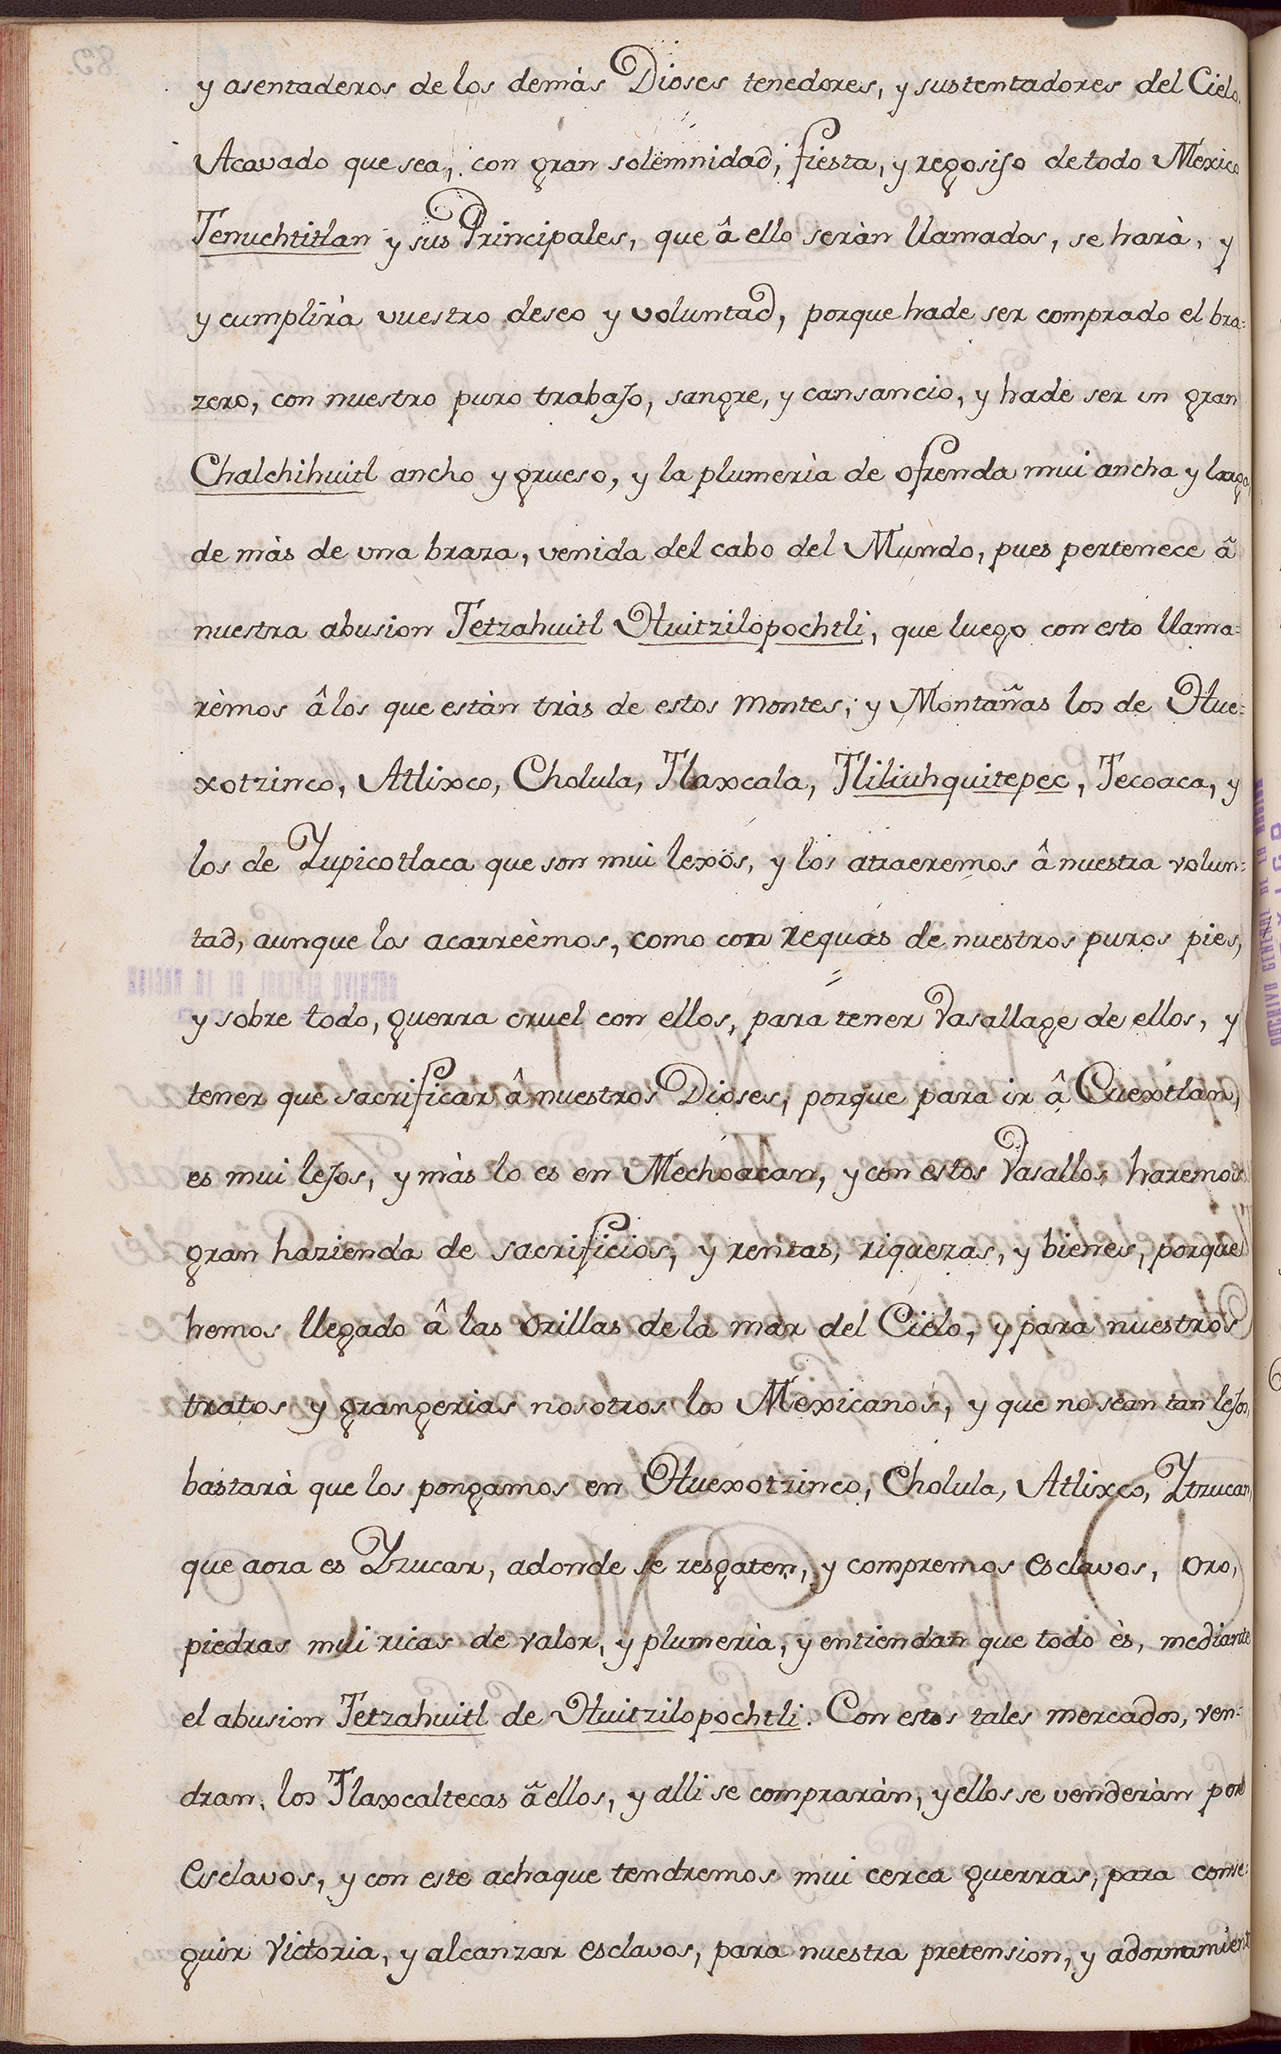 y asentaderos de los demàs Dioses tenedores, y sustentadores del Cielo.
Acavado que sea, con gran solemnidad, fiesta, y regosiJo de todo Mexico
Tenuchtitlan y sus Principales, que â ello seràn llamados, se harà, y
y cumplirà vuestro deseo y voluntad, porque hade ser comprado el bra=
zero, con nuestro puro trabaJo, sangre, y cansancio, y hade ser un gran
Chalchihuitl ancho y grueso, y la plumerìa de ofrenda mui ancha y larga,
de màs de una braza, venida del cabo del Mundo, pues pertenece â
nuestra abusion Tetzahuitl Huitzilopochtli, que luego con esto llama=
rèmos â los que estàn tràs de estos montes, y Montañas los de Hue=
xotzinco, Atlixco, Cholula, Tlaxcala, Tliliuhquitepec, Tecoaca, y
los de Yupicotlaca que son mui lexos, y los atraeremos â nuestra volun=
tad, aunque los acarreèmos, como con requas de nuestros puros pies,
y sobre todo, guerra cruel con ellos, para tener Vasallage de ellos, y
tener que sacrificar â nuestros Dioses, porque para ir â Cuextlan,
es mui leJos, y màs lo es en Mechoacan, y con estos Vasallos haremos
gran hazienda de sacrificios, y rentas, riquezas, y bienes, porque
hemos llegado â las orillas de la mar del Cielo, y para nuestros
tratos y grangerias nosotros los Mexicanos, y que no sean tan leJos,
bastarà que los pongamos en Huexotzinco, Cholula, Atlixco, Ytzucan,
que aora es Yzucar, adonde se resgaten, y compremos esclavos, oro,
piedras mui ricas de valor, y plumerìa, y entiendan que todo ès, mediante
el abusion Tetzahuitl de Huitzilopochtli. Con estos tales mercados, ven=
dran, los Tlaxcaltecas â ellos, y alli se compraràn, y ellos se venderàn por
esclavos, y con este achaque tendremos mui cerca guerras, para conse=
guir victoria, y alcanzar esclavos, para nuestra pretension, y adornamient